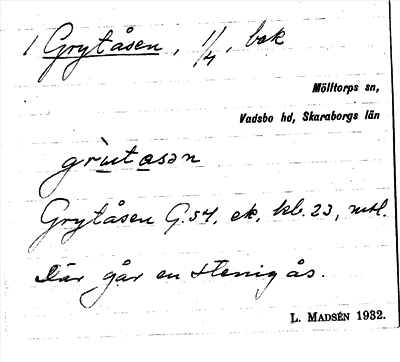 1 Grytåsen, 1/4, bek
Mölltorps sn,
Vadsbo hd, Skaraborgs län
grùtɑsən
Grytåsen G.54, ek. kb. 23, mtl.
Där går en stenig ås.
L. MADSÉN 1932.